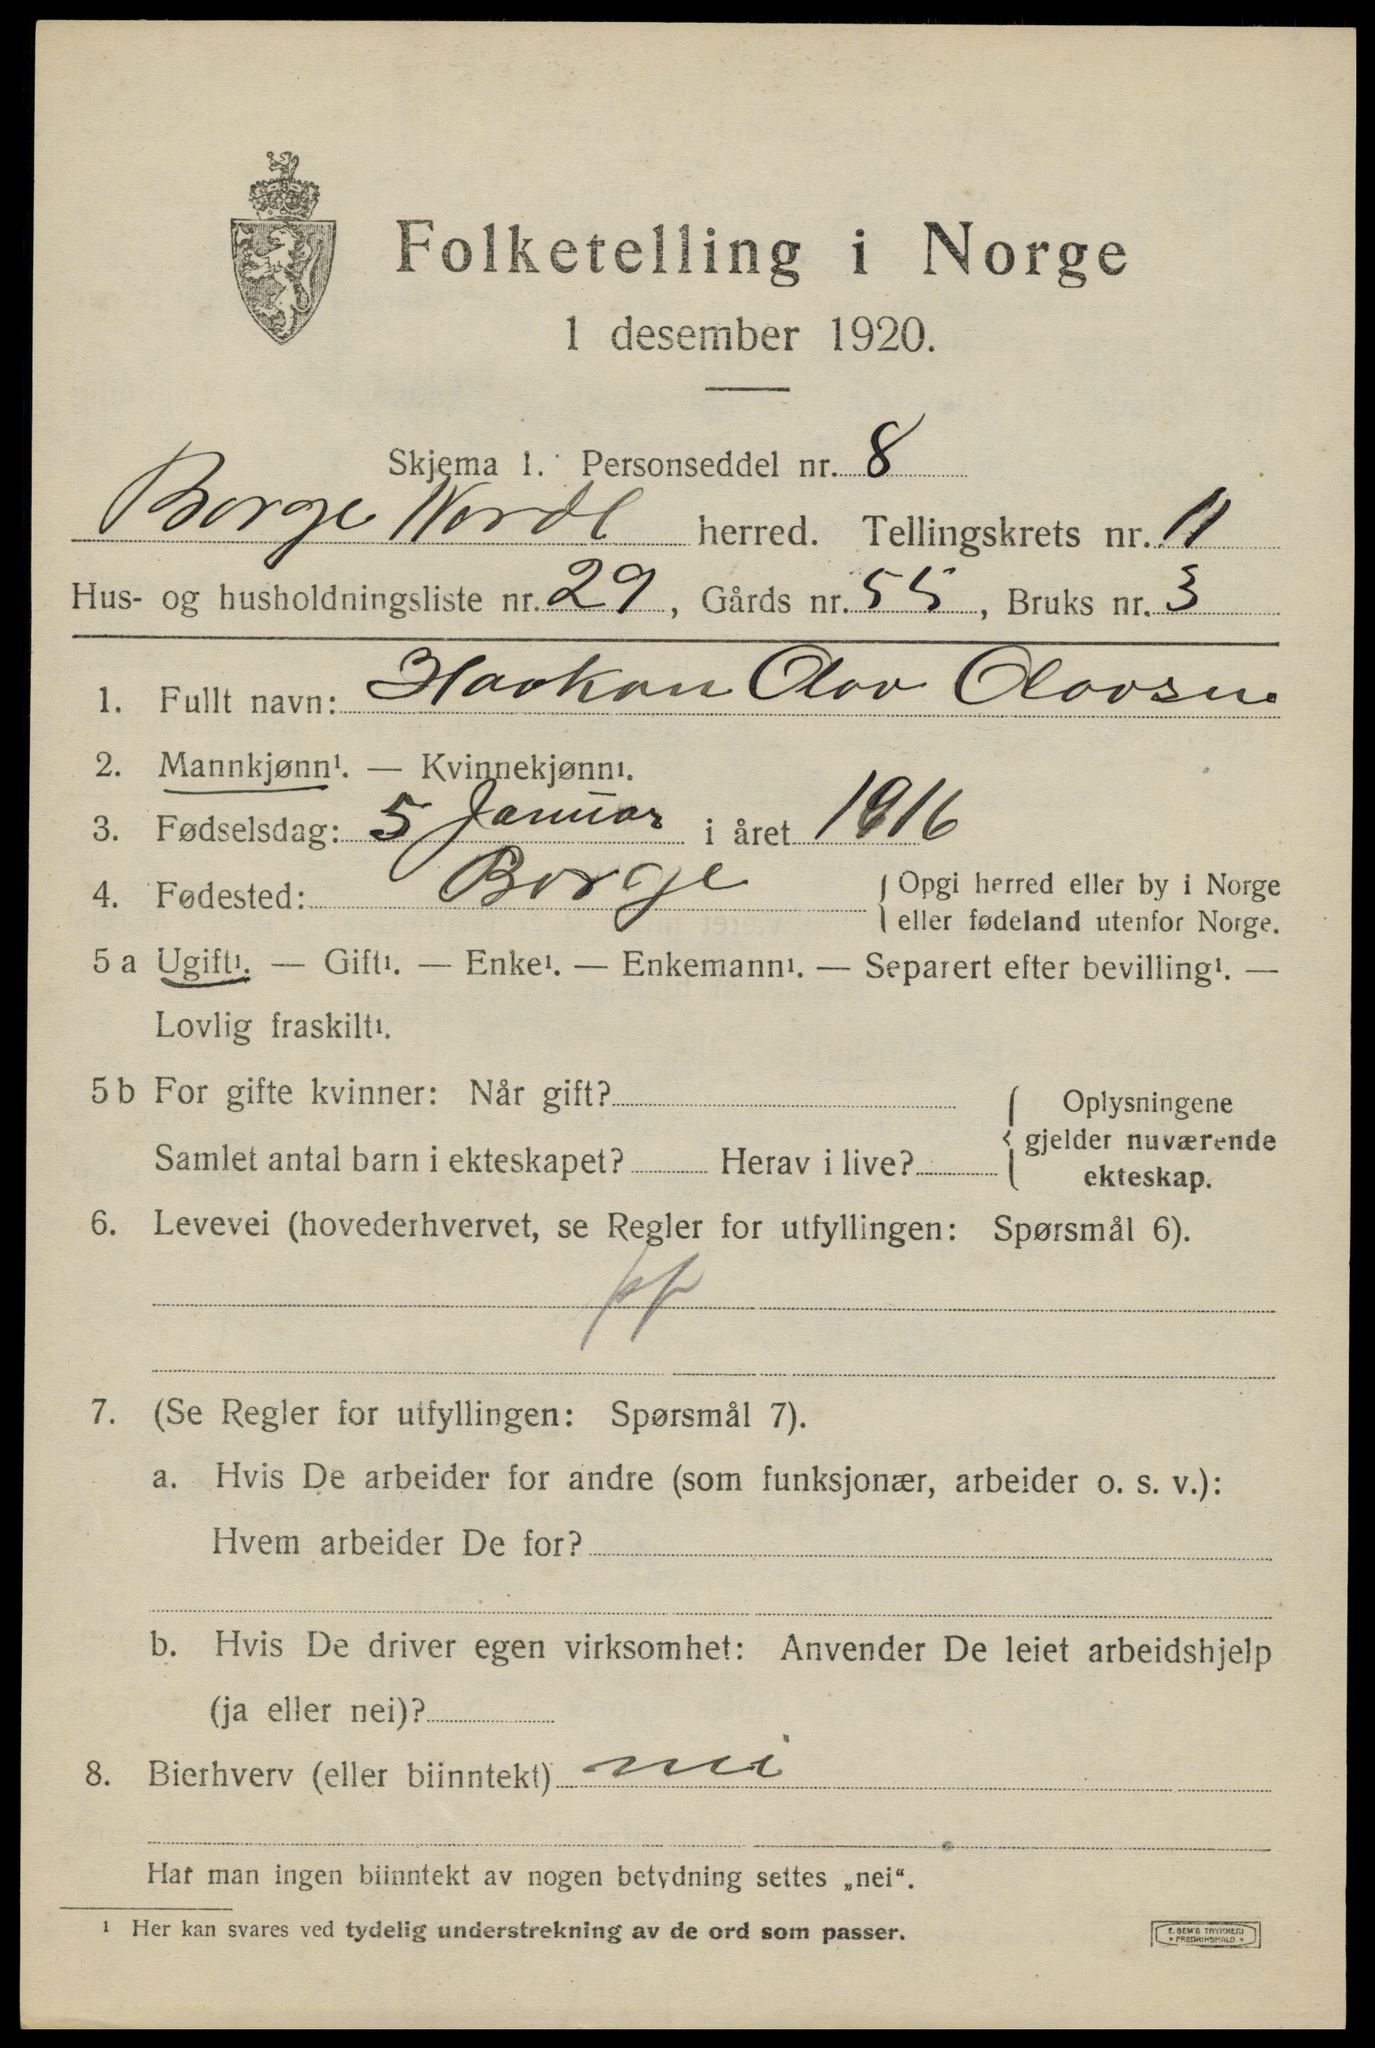 Folketelling i Norge
1 desember 1920.
Skjema 1. Personseddel nr. 8
Borge Nordl herred. Tellingskrets nr. 11
Hus- og husholdningsliste nr. 29, Gårds nr. 55, Bruks nr. 3
1. Fullt navn: Haakon Olav Olavsen
2. Mannkjønn¹. — Kvinnekjønn¹.
3. Fødselsdag: 5 Januar i året 1916
4. Fødested: Borge { Opgi herred eller by i Norge
eller fødeland utenfor Norge.
5 a Ugift¹. — Gift¹. — Enke¹. — Enkemann¹. — Separert efter bevilling¹. —
Lovlig fraskilt¹.
5 b For gifte kvinner: Når gift?
Samlet antal barn i ekteskapet? Herav i live?
{ Oplysningene
gjelder nuværende
ekteskap.
6. Levevei (hovederhvervet, se Regler for utfyllingen: Spørsmål 6).
7. (Se Regler for utfyllingen: Spørsmål 7).
a. Hvis De arbeider for andre (som funksjonær, arbeider o. s. v.):
Hvem arbeider De for?
b. Hvis De driver egen virksomhet: Anvender De leiet arbeidshjelp
(ja eller nei)?
8. Bierhverv (eller biinntekt) nei
Har man ingen biinntekt av nogen betydning settes „nei“.
¹ Her kan svares ved tydelig understrekning av de ord som passer.
E. SEM'S TRYKKERI
• FREDRIKSHALD •